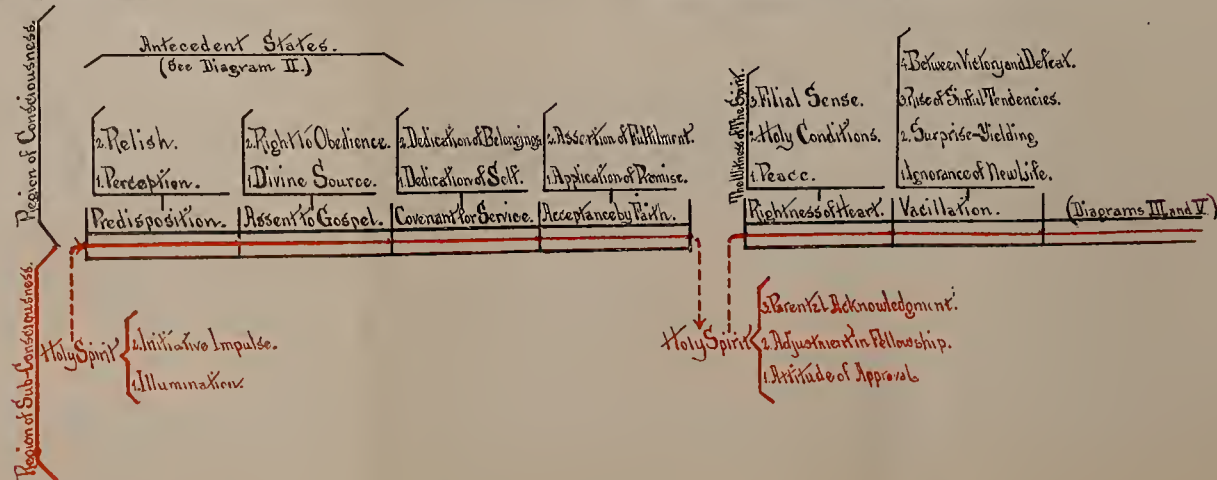 Region of Consciousness.
Antecedent States.
(See Diagram II.)
2. Relish.
1. Perception.
Predisposition.
2. Right to Obedience.
1. Divine Source.
Assent to Gospel.
2. Dedication of Belongings
1. Dedication of Self.
Covenant for Service.
2. Assertion of Fulfilment.
1. Application of Promise.
Acceptance by Faith.
The Witness of The Spirit.
3. Filial Sense.
2. Holy Conditions.
1. Peace.
Rightness of Heart.
4. Between Victory and Defeat.
3. Rise of Sinful Tendencies.
2. Surprise-Yielding
1. Ignorance of New Life.
Vacillation.
(Diagrams III, and V)
Region of Sub-Consciousness.
Holy Spirit
2. Initiative Impulse.
1. Illumination.
Holy Spirit
3. Parental Acknowledgment.
2. Adjustment in Fellowship.
1. Attitude of Approval